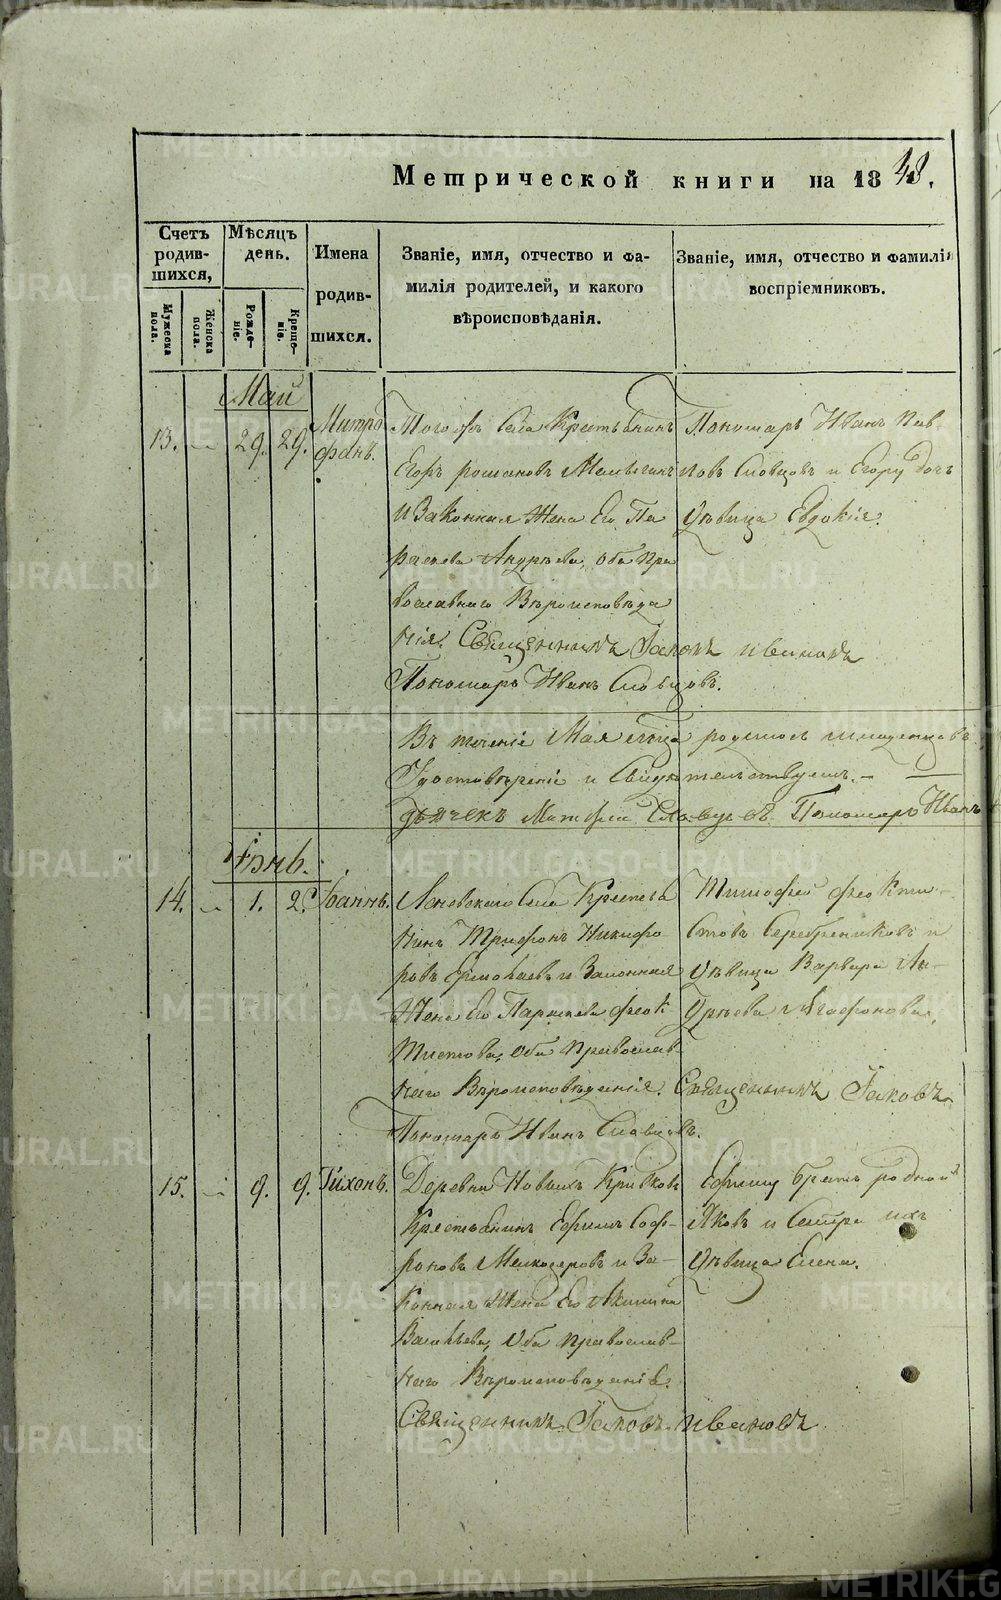 Метрической книги на 1848.
Счетъ родив-шихся,
Мѣсяцъ день.
Имена родив-шихся.
Званіе, имя, отчество и фа-
милія родителей, и какого
вѣроисповѣданія.
Званіе, имя, отчество и фамилія
воспріемниковъ.
Мужеска пола.
Женска пола.
Рожде-ніе.
Креще-ніе.
Май
13. — 29. 29. Митро
фанъ.
Тогожъ Села Крестьянинъ
Егоръ романовъ
И Законная Жена Его Па
раскева Андреева, Оба Пра
вославнаго Вѣроисповѣда
нія. Священникъ Іаковъ ивановъ
Пономарь Иванъ Словцовъ.
Пономарь Иванъ Пав-
ловъ Словцовъ и Егору дочь
Дѣвица Евдокія.
Въ теченіе Мая мѣсяца родилось младенцовъ
Удостовѣреніе и Свидѣтельствуемъ. —
Дьячекъ Матфей Словцовъ Пономарь Иванъ
Іюнь.
14. — 1. 2. Іоаннъ.
Села Крестья
нинъ Трифонъ Никифо
ровъ Ермолаевъ и Законная
Жена Его Параскева Феок
тистова, Оба Православ
наго Вѣроисповѣданія. Священникъ Іаковъ
Пономарь Иванъ Словцовъ.
Тимофей Феокти-
стовъ Серебренниковъ и
Дѣвица Варвара Ан-
дреева Агафонова.
15. — 9. 9. Тихонъ.
Деревни Новыхъ Кривковъ
Крестьянинъ Ефимъ Соф-
роновъ Мелкозеровъ и За-
конная Жена Его Акилина
Васильева, Оба Православ-
наго Вѣроисповѣданія.
Священникъ Іаковъ ивановъ
Ефиму братъ родной
Яковъ и Сестра ихъ
Дѣвица Елена.
METRIKI.GASO-URAL.RU